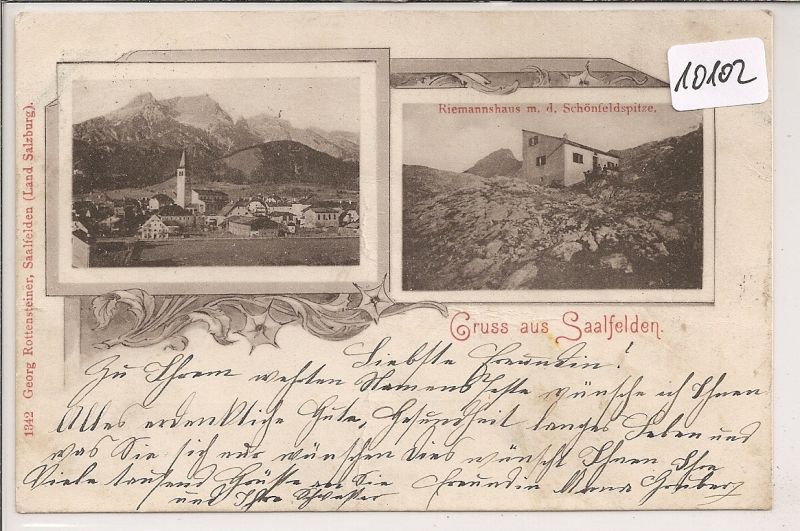 10102
Riemannshaus m. d. Schönfeldspitze.
1342 Georg Rottensteiner, Saalfelden (Land Salzburg).
Gruss aus Saalfelden.
Liebste Freundin!
Zu Ihrem wehrten Namensfeste wünsche ich Ihnen
Alles erdenkliche Gute, Gesundheit langes Leben und
was Sie sich nur wünschen Dies wünscht Ihnen Ihre
Viele tausend Grüsse an Sie Freundin Gruber
und Ihre Schwester